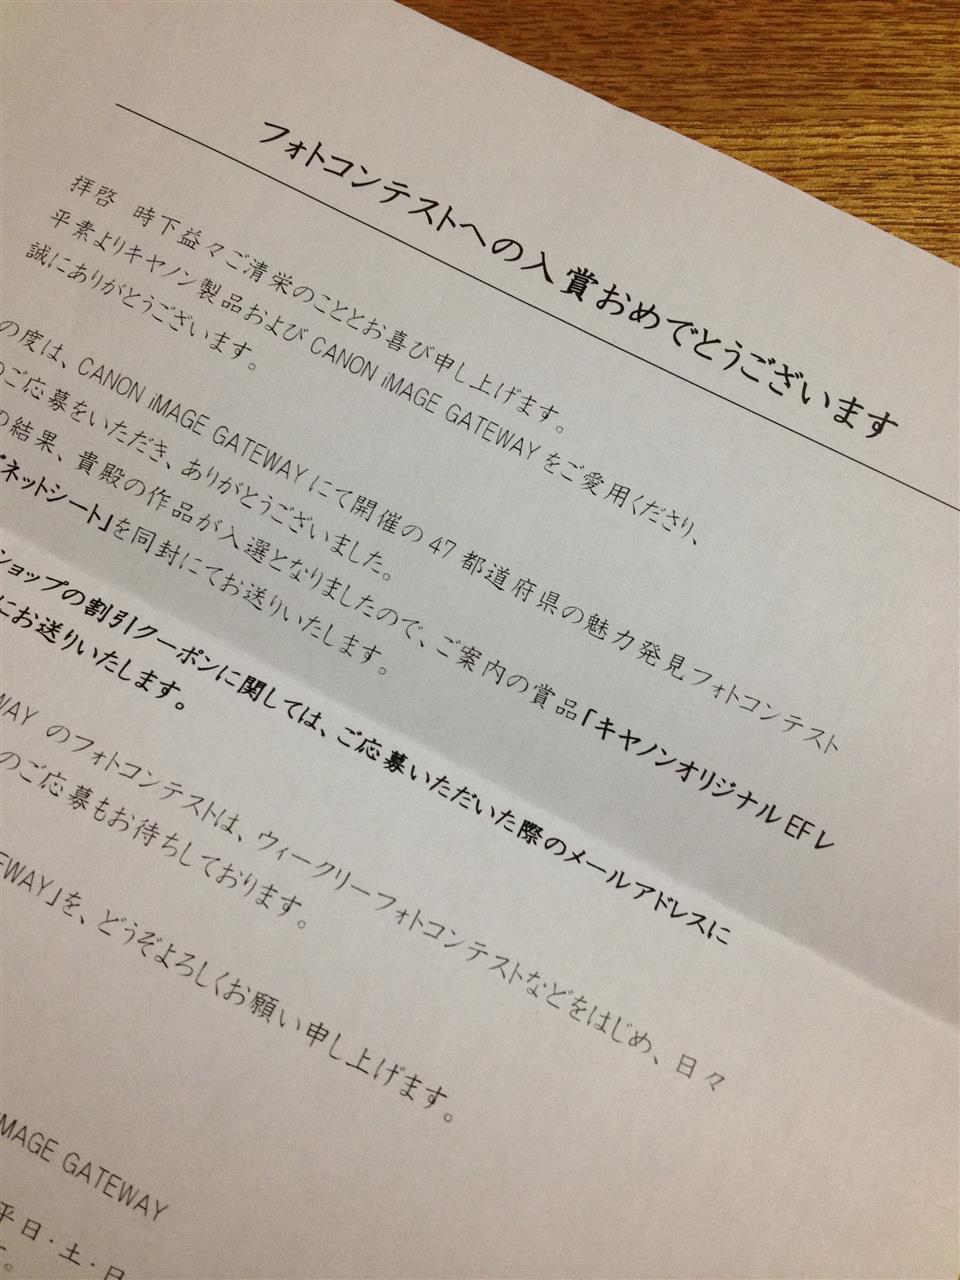 フォトコンテストへの入賞おめでとうございます
拝啓 時下益々ご清栄のこととお喜び申し上げます。
平素よりキヤノン製品およびCANON iMAGE GATEWAYをご愛用くださり、
誠にありがとうございます。
の度は、CANON iMAGE GATEWAYにて開催の47都道府県の魅力発見フォトコンテスト
のご応募をいただき、ありがとうございました。
の結果、貴殿の作品が入選となりましたので、ご案内の賞品「キヤノンオリジナルEFレ
ネットシート」を同封にてお送りいたします。
ショップの割引クーポンに関しては、ご応募いただいた際のメールアドレスに
にお送りいたします。
WAY のフォトコンテストは、ウィークリーフォトコンテストなどをはじめ、日々
のご応募もお待ちしております。
EWAY」を、どうぞよろしくお願い申し上げます。
MAGE GATEWAY
平日・土・日
す。